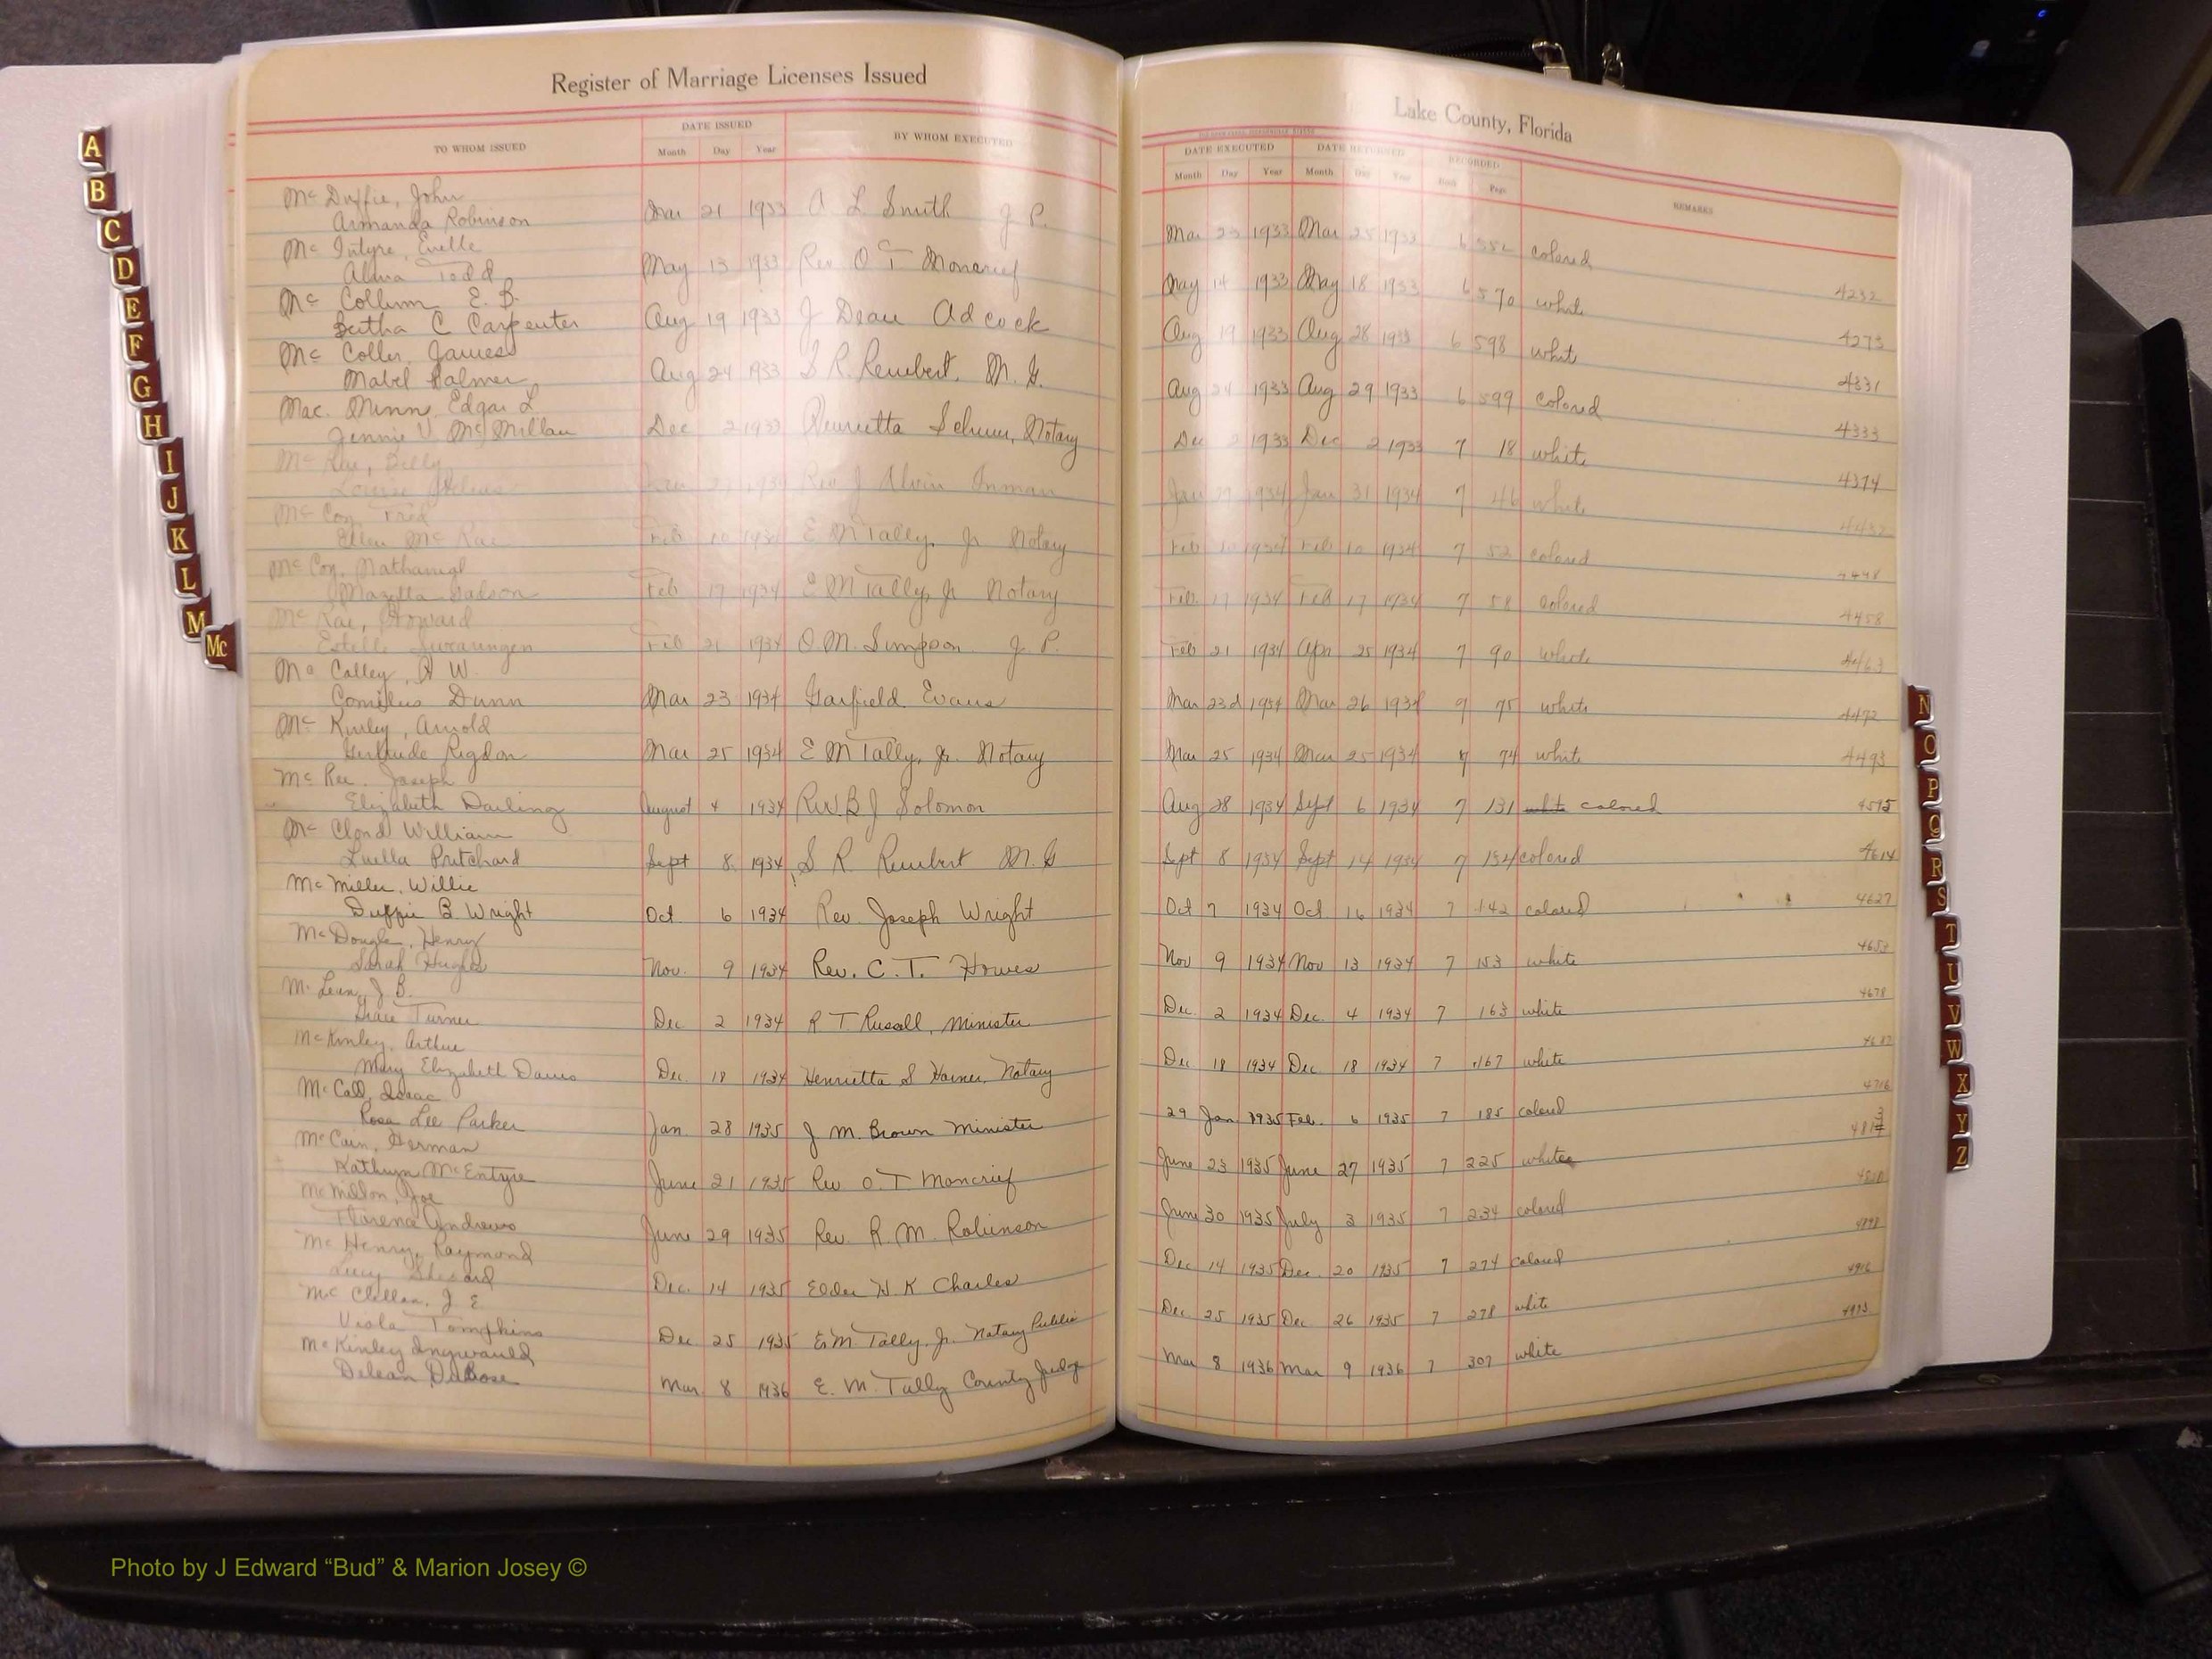 Register of Marriage Licenses Issued
Lake County, Florida
TO WHOM ISSUED
DATE ISSUED
Month Day Year
BY WHOM EXECUTED
DATE EXECUTED
Month Day Year
DATE RETURNED
Month Day Year
RECORDED
Book Page
REMARKS
Mc Duffie, John
Armanda Robinson Mar 21 1933 A L Smith J P. Mar 1933 Mar 25 1933 6 552 colored 4232
Mc Intyre, Evelle
Alma Todd May 13 1933 Rev O T Moncrief May 14 1933 May 18 1933 6 570 white 4273
Mc Collum E. B.
Bertha C Carpenter Aug 19 1933 J Dean Adcock Aug 19 1933 Aug 28 1933 6 598 white 4331
Mc Coller, James
Mabel Palmer Aug 24 1933 S R. Rembert, M. G. Aug 24 1933 Aug 29 1933 6 599 colored 4333
Mac. Minn, Edgar L
Jennie V McMillan Dec 2 1933 Henrietta Notary Dec 2 1933 Dec 2 1933 7 18 white 4374
Mc Rae, Billy
Louise 1934 Rev J Alvin Inman Jan 1934 Jan 31 1934 7 46 white
Mc Coy, Fred
Ellen Mc Rae Feb 10 1934 E M Tally, Jr Notary Feb 10 1934 Feb 10 1934 7 52 colored
Mc Coy, Nathaniel
Mazella Feb 17 1934 E M Tally, Jr Notary Feb. 17 1934 Feb 17 1934 7 58 colored 4458
Mc Rae, Howard
Estelle Swearingen Feb 21 1934 O. M. Simpson J P. Feb 21 1934 Apr 25 1934 7 90 white 4463
Mc Calley, A W.
Dunn Mar 23 1934 Garfield Evans Mar 23d 1934 Mar 26 1934 75 white 4472
Mc Kinley, Arnold
Gertrude Rigdon Mar 25 1934 E M Tally, Jr. Notary Mar 25 1934 Mar 25 1934 7 74 white 4493
Mc Ree, Joseph
Elizabeth Darling August 4 1934 Rev. B J Solomon Aug 28 1934 Sept 6 1934 7 131 white colored 4595
Mc Cloud William
Luella Pritchard Sept 8 1934 S R Rembert M. G Sept 8 1934 Sept 14 1934 7 134 colored 4614
Mc Miller, Willie
Duffie B Wright Oct 6 1934 Rev. Joseph Wright Oct 7 1934 Oct 16 1934 7 142 colored 4627
McDougle, Henry
Sarah Hughes Nov. 9 1934 Rev. C. T. Howes Nov 9 1934 Nov 13 1934 7 153 white 4653
Mc Lean, J B.
Grace Turner Dec 2 1934 R T Russell, Minister Dec. 2 1934 Dec. 4 1934 7 163 white 4678
McKinley, Arthur
Mary Elizabeth Davis Dec. 18 1934 Henrietta S Notary Dec 18 1934 Dec 18 1934 7 167 white
McCall, Isaac
Rosa Lee Parker Jan. 28 1935 J M. Brown Minister 29 Jan 1935 Feb. 6 1935 7 185 colored 4716
McCain, Herman
Kathryn McEntyre June 21 1935 Rev O. T. Moncrief June 23 1935 June 27 1935 7 225 white
McMillon, Joe
Florence Andrews June 29 1935 Rev. R. M. Robinson June 30 1935 July 3 1935 7 234 colored
Mc Henry, Raymond
Lucy Dec. 14 1935 Elder H. K Charles Dec 14 1935 Dec. 20 1935 7 274 colored
Mc Clellan, J E
Viola Tompkins Dec. 25 1935 E. M. Tally, Jr. Notary Public Dec 25 1935 Dec 26 1935 7 278 white 4916
McKinley
Delean DuBose Mar. 8 1936 E. M. Tally County Judge Mar 8 1936 Mar 9 1936 7 307 white
A
B
C
D
E
F
G
H
I
J
K
L
M
Mc
N
O
P
Q
R
S
T
U
V
W
X
Y
Z
Photo by J Edward “Bud” & Marion Josey ©